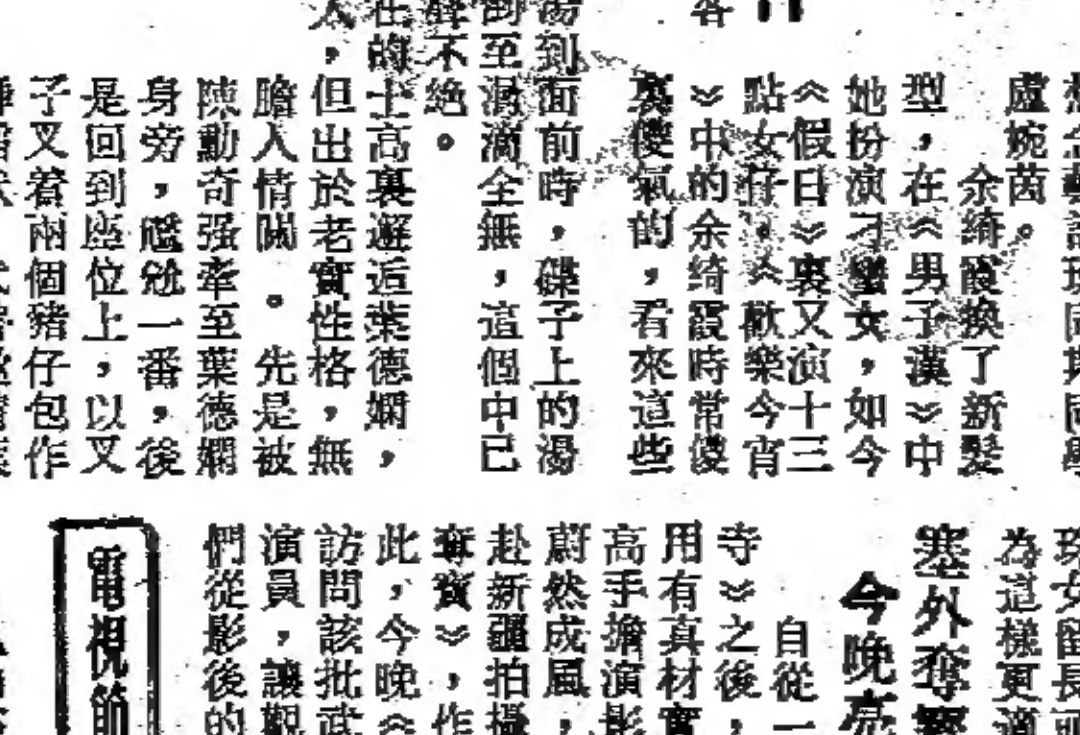 盧婉茵。
余綺霞換了新髮
型，在《男子漢》中
她扮演刁蠻女，如今
《假日》裏又演十三
點女仔。《歡樂今宵
》中的余綺霞時常傻
裏傻氣的，看來這些
湯到面前時，碟子上的湯
倒至湯滴全無，這個中已
聲不絕。
在的士高裏邂逅葉德嫻，
太，但出於老實性格，無
膽入情關。先是被
陳勳奇强牽至葉德嫻
身旁，尷尬一番，後
是回到座位上，以叉
子叉着兩個豬仔包作
為這樣更適
塞外奪寶
今晚亮
自從一
寺》之後，
用有真材實
高手擔演影
蔚然成風，
赴新疆拍攝
奪寶》，作
此，今晚《
訪問該批武
演員，讓觀
們從影後的
電視節